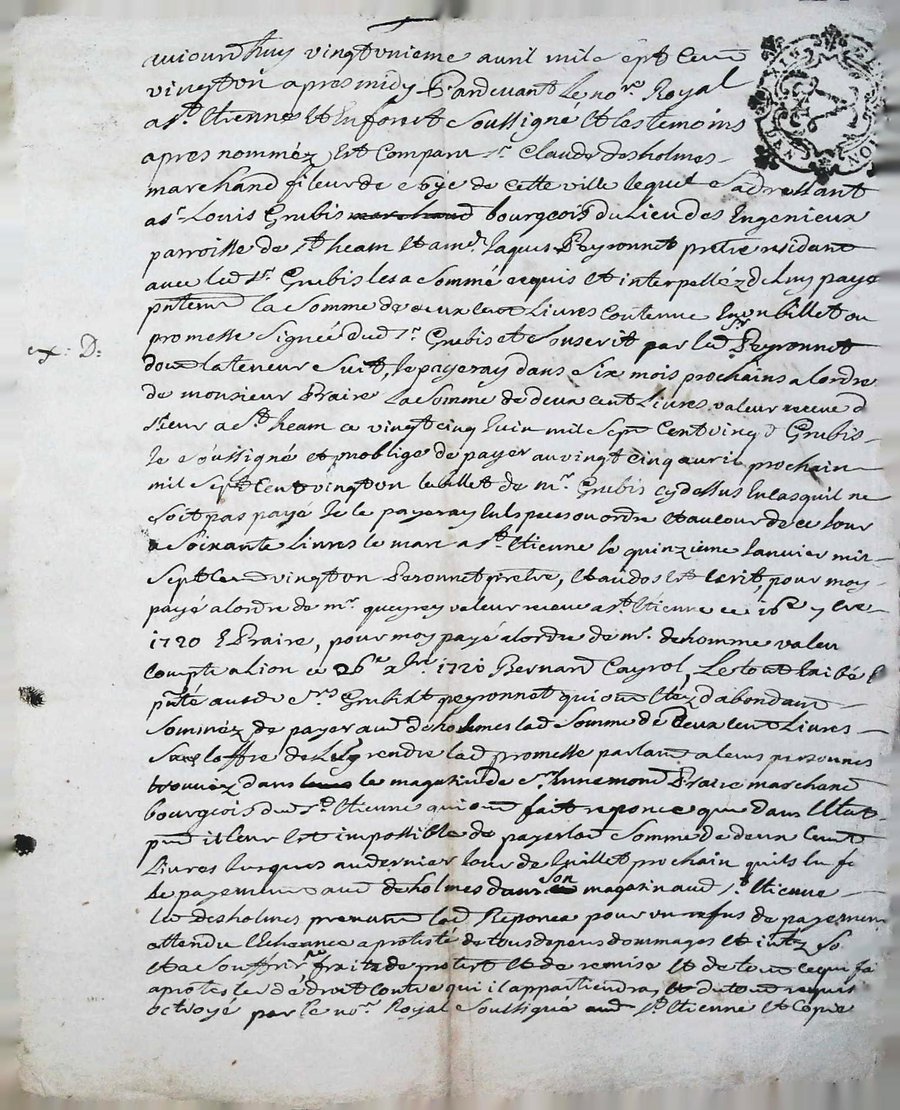 aujourdhuy vingtunieme auril mil sept Cent
vingtun apres midy Pardeuant Le no.re Royal
a S.t Etiennes et En foretz Soussigné Et les temoins
apres nommez Est Comparu s.r Claude desholmes
marchand fileur de soye de cette ville lequel sadressant
a s.r Louis Grubis marchand bourgeois du Lieu des Ingenieux
parroisse de S.t heam et a m.re Jaques Peyronnet pretre residant
auec led s.r Grubis les a Sommé requis et interpelléz de luy payé
pntemt la Somme de deux Cent Liures Contenue En un billet ou
promesse Signée dud s.r Grubis et Souscrit par led s.r Peyronnet
ex: D:
dont la teneur Suit, Je payeray dans Six mois prochains a lordre
de monsieur Praire La Somme de deux Cent Liures valeur receue d
sieur a S.t heam ce vingt cinq Juin mil Sept Cent vingt Grubis
Je Soussigné et moblige de payer au vingt cinq auril prochain
mil Sept Cent vingtun le billet de m.r Grubis cy dessus En Cas quil ne
soit pas payé Je le payeray En Especes ou ordre Et au Cour de ce Jour
a Soixante Liures le marc a S.t Etienne le quinzieme Januier mil
Sept Cent vingtun Peronnet pretre, Et au dos Est Ecrit, pour moy
payé a lordre de m.r queyrey valeur receue a S.t Etienne ce 26e
1720 E Praire, pour moy payé a lordre de m.r dehomme valeur
Compte a Lion ce 26e 1720 Bernard Cayrol, Le tout Exibé E
pnté ausd s.rs Grubis Et peyronnet qui ont Etez dabondant
Somméz de payer aud desholmes lad Somme de Deux Cent Liures
Sous loffre de Luy rendre lad promesse parlant a leurs personnes
trouuéz dans le magazin de s.r Ennemond Praire marchand
bourgeois dud S.t Etienne qui ont fait reponce que dans lEtat
pnt il leur Est impossible de payer lad Somme de deux Cent
Liures Jusques au dernier Jour de Juillet prochain quils luy fe
le payement aud desholmes dans son magazin aud S.t Etienne
led desholmes prenant lad Reponce pour un refus de payement
attendu lEcheance a protesté de tous depens dommages Et intz
Et a Souffrir fraix de protest Et de remise Et de tout ce quil
a protester de droit Contre qui il appartiendra, Et du tout requis
octroyé par le no.re Royal Soussigné aud S.t Etienne Et Copie